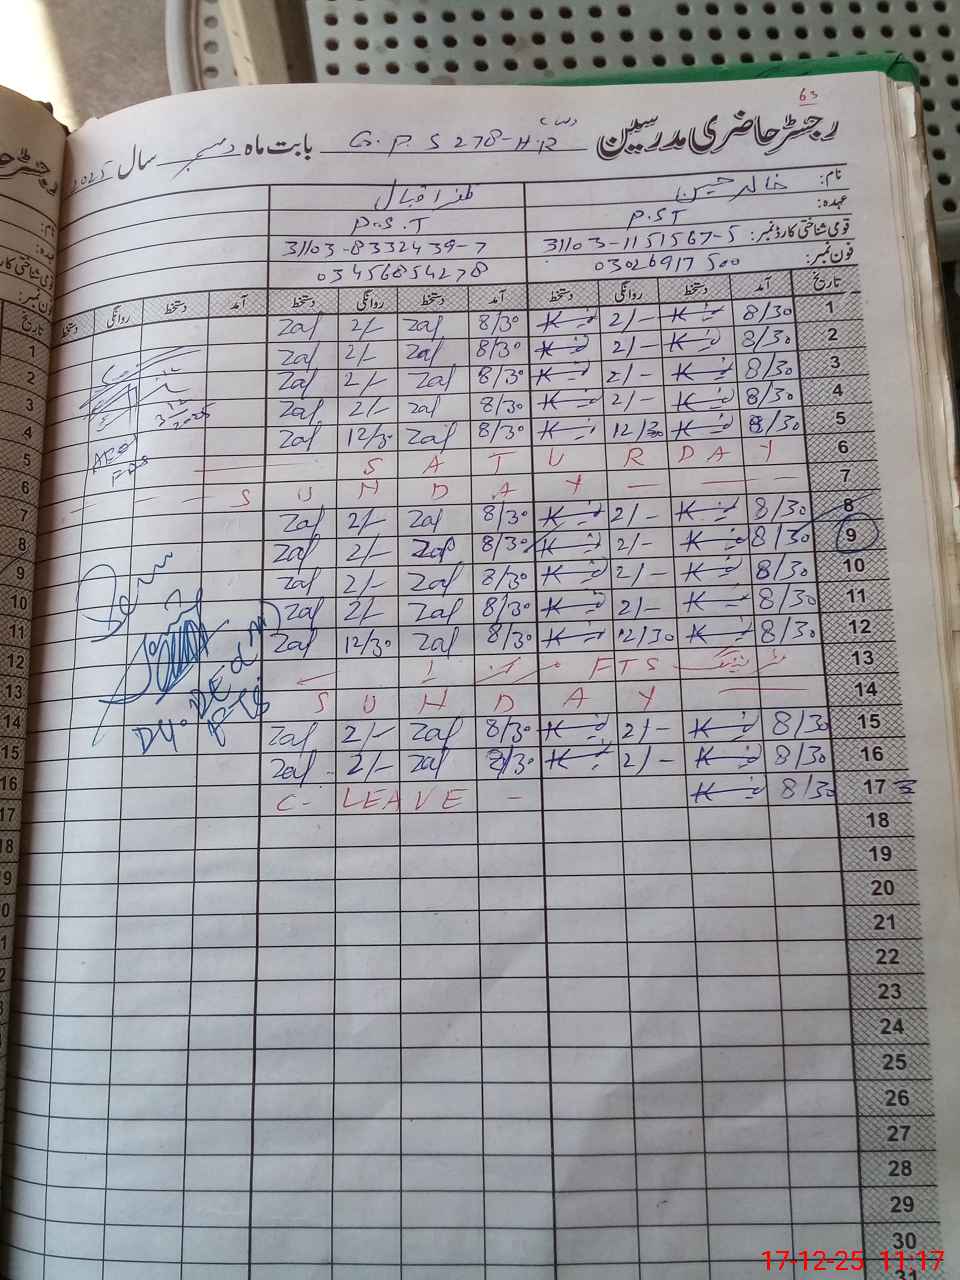 63
رجسٹر حاضری مدرسین G.P.S 278-HR بابت ماہ دسمبر سال 2025
نام: خالد حسین ظفر اقبال
عہدہ: P.ST P.S.T
قومی شناختی کارڈ نمبر: 31103-1151567-5 31103-8332439-7
فون نمبر: 03026917500 03456854278
تاریخ آمد دستخط روانگی دستخط آمد دستخط روانگی دستخط آمد دستخط روانگی دستخط
1 8/30 2/- 8/30 Zaf 2/- Zaf
2 8/30 2/- 8/30 Zaf 2/- Zaf
3 8/30 2/- 8/30 Zaf 2/- Zaf
4 8/30 2/- 8/30 Zaf 2/- Zaf
5 8/30 12/30 8/30 Zaf 12/30 Zaf
6 SATURDAY
7 SUNDAY
8 8/30 2/- 8/30 Zaf 2/- Zaf
9 8/30 2/- 8/30 Zaf 2/- Zaf
10 8/30 2/- 8/30 Zaf 2/- Zaf
11 8/30 2/- 8/30 Zaf 2/- Zaf
12 8/30 12/30 8/30 Zaf 12/30 Zaf
13 FTS
14 SUNDAY
15 8/30 2/- 8/30 Zaf 2/- Zaf
16 8/30 2/- 8/30 Zaf 2/- Zaf
17 8/30 C- LEAVE -
18
19
20
21
22
23
24
25
26
27
28
29
30
31
AEO
FDS
Dy. DEO
17-12-25 11:17